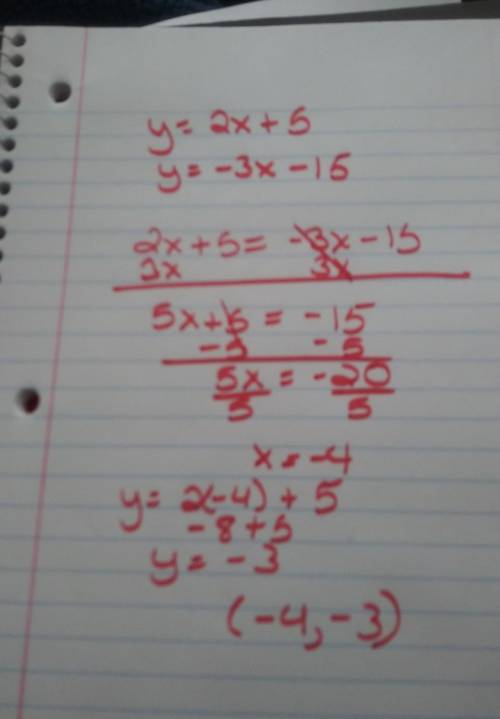 y = 2x + 5
y = -3x - 15
2x + 5 = -3x - 15
3x 3x
5x + 5 = -15
-5 -5
5x = -20
5 5
x = -4
y = 2(-4) + 5
-8 + 5
y = -3
(-4, -3)